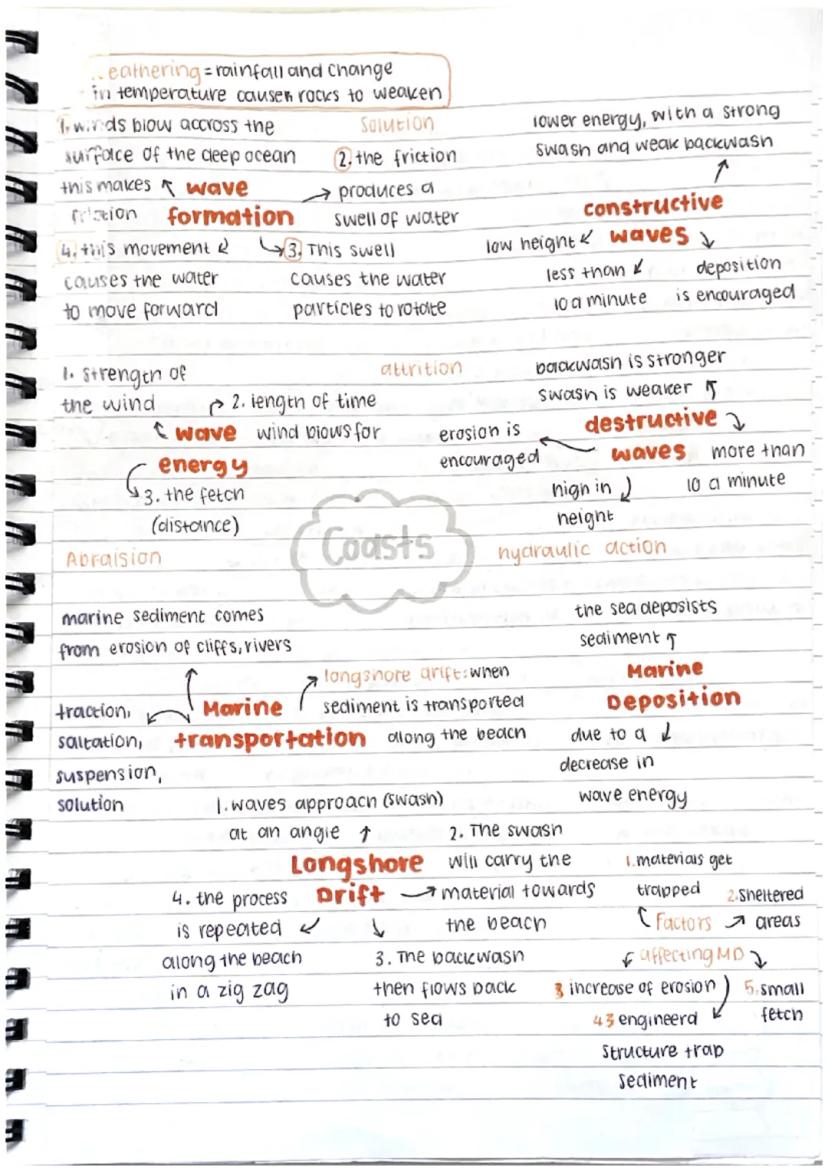 eathering = rainfall and change
in temperature causen rocks to weaken
1. winds blow accross the
surface of the deep ocean
this makes
friction
wave
formation
Solution
2. the friction
produces a
swell of water
3. This swell
causes the water
particles to rotate
4. this movement
causes the water
to move forward
lower energy, with a strong
swash and weak backwash
constructive
waves
low height
less than
10 a minute
deposition
is encouraged
1. strength of
the wind
attrition
2. length of time
wind blows for
wave
energy
3. the fetch
(distance)
backwash is stronger
swash is weaker
destructive
waves
erosion is
encouraged
more than
10 a minute
high in
height
Coasts
Abraision
hydraulic action
marine sediment comes
from erosion of cliffs, rivers
Marine
transportation
longshore drift: when
sediment is transported
along the beach
traction,
saltation,
suspension,
solution
the sea deposists
sediment
Marine
Deposition
due to a
decrease in
wave energy
1. waves approach (swash)
at an angle
Longshore
Drift
2. The swash
will carry the
material towards
the beach
3. The backwash
then flows back
to sea
4. the process
is repeated
along the beach
in a zig zag
1. materials get
trapped
2. sheltered
areas
Factors
affecting MD
3 increase of erosion
43 engineerd
structure trap
sediment
5. small
fetch